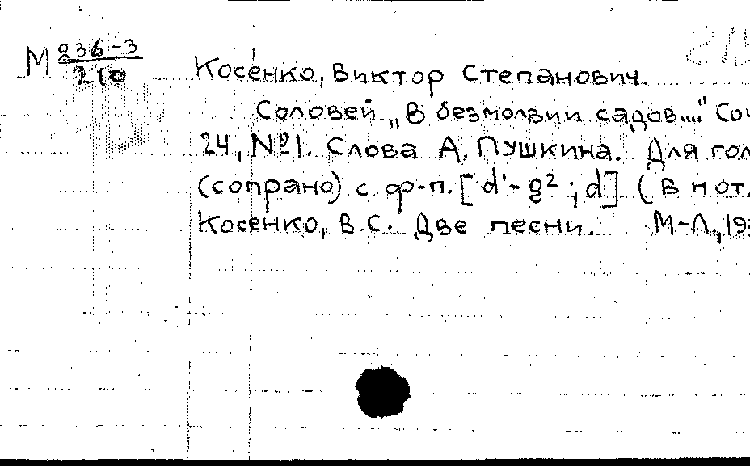 М 236-3
210
Косенко, Виктор Степанович.
Соловей „В безмолвии садов...." Соч
24, №1. Слова А. Пушкина. Для гол
(сопрано) с ф-п. [d¹-g²; d] (В нот.
Косенко, В.С. Две песни. М-Л, 19